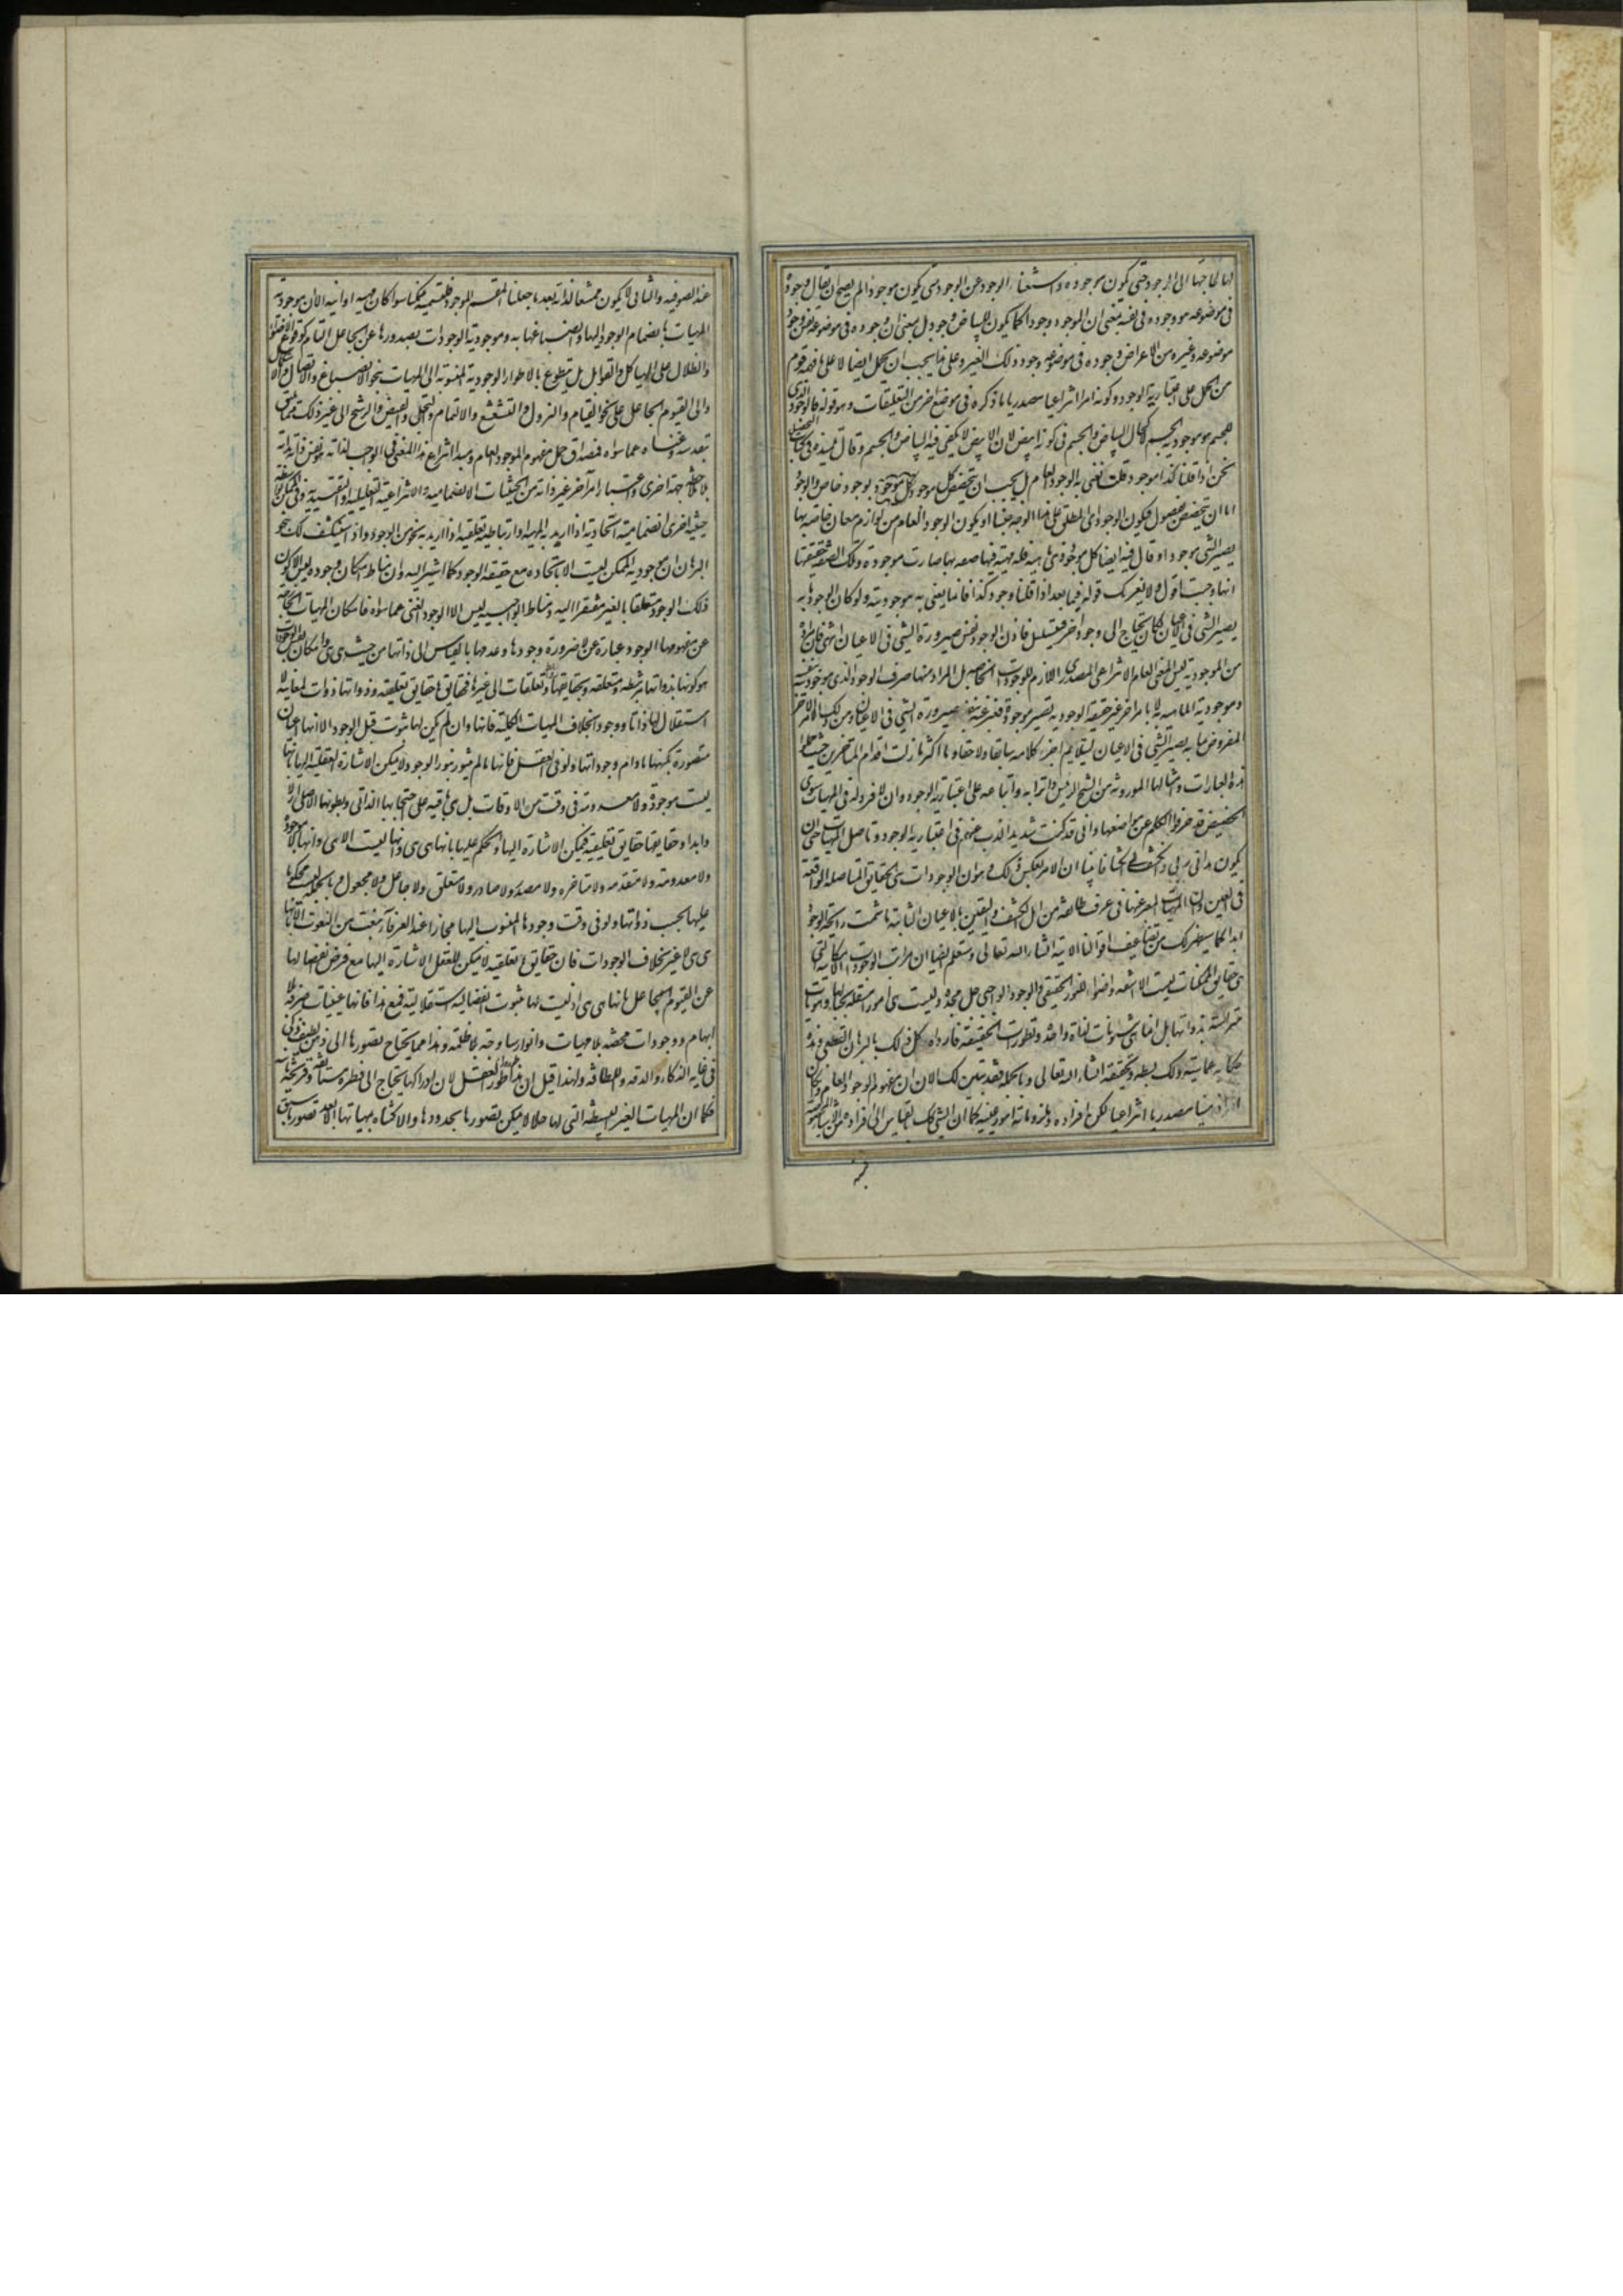 لها لحاجتها الى الوجود حتى تكون موجودة واستغناء الوجود عن الوجود حتى يكون موجودا لم يصح ان يقال وجوده
فى موضوعه هو وجوده فى نفسه بمعنى ان للوجود وجودا كما يكون للبياض وجود بل بمعنى ان وجوده فى موضوعه نفس وجود
موضوعه وغيره من الاعراض وجوده فى موضوعه وجود ذلك الغير وعلى هذا يجب ان يحمل ايضا لا على ما فهمه قوم
من الحمل على اعتبارية الوجود وكونه امرا انتزاعيا مصدريا ما ذكره فى موضع اخر من التعليقات وهو قوله فالوجود الذى
للجسم هو موجودية الجسم لا كحال البياض والجسم فى كونه ابيض لان الابيض لا يكفى فيه البياض والجسم وقال تلميذه فى كتاب التحصيل
نحن اذا قلنا كذا موجود فلسنا نعنى به الوجود العام بل يجب ان يتخصص كل موجود بوجود خاص والوجود
اما ان يتخصص بفصول فيكون الوجود اى المطلق على هذا الوجه جنسا او يكون الوجود العام من لوازم معان خاصة بها
يصير الشى موجودا وقال فيه ايضا كل موجود ذى مهية فله مهية فيها صفة بها صارت موجودة وتلك الصفة حقيقتها
انها وجبت اقول ولا يغرنك قوله فيما بعد اذا قلنا وجود كذا فانما يعنى به موجوديته ولو كان الوجود به
يصير الشى فى الاعيان لكان يحتاج الى وجود اخر فيتسلسل فاذن الوجود نفس صيرورة الشى فى الاعيان انتهى فان مراده
من الموجودية ليس المعنى العام الانتزاعى المصدرى اللازم للوجودات الخاصة بل المراد منها صرف الوجود الذى موجوديته بنفسه
وموجودية الماهية به لا بامر اخر غير حقيقة الوجود به يصير موجودة فعبر عنه بنفس صيرورة الشى فى الاعيان وعن ذلك الامر الاخر
المفروض بما به يصير الشى فى الاعيان ليتلايم اجزاء كلامه سابقا ولاحقا وما اكثر ما زلت اقدام المتاخرين حيث حملوا
هذه العبارات وامثالها الموروثة من الشيخ الرئيس واترابه واتباعه على اعتبارية الوجود وان لا فرد له فى المهيات سوى
الحصص قد حرفوا الكلم عن مواضعها وانى قد كنت شديد الذب عنهم فى اعتبارية الوجود وتاصل المهيات حتى ان
يكون هدانى ربى وانكشف لى انكشافا بينا ان الامر بعكس ذلك وهو ان الوجودات هى الحقايق المتاصلة الواقعة
فى العين وان المهيات المعبر عنها فى عرف طائفة من اهل الكشف واليقين بالاعيان الثابتة ما شمت رائحة الوجود
ابدا كما سيظهر لك من تضاعيف اقوالنا الاتية انشاء الله تعالى وستعلم ايضا ان مراتب الوجودات الامكانية التى
هى حقايق الممكنات ليست الا اشعة واضواء للنور الحقيقى والوجود الواجبى جل مجده وليست هى امورا مستقلة بحيالها وهويات
مترأسة بذواتها بل انما هى شئونات لذات واحدة وتطورات لحقيقة فاردة كل ذلك بالبرهان القطعى وهذه
حكاية عما سيرد لك بسطه وتحقيقه انشاء الله تعالى وبالجملة فقد تبين لك الان ان مفهوم الوجود العام وان كان
امرا ذهنيا مصدريا انتزاعيا لكن افراده وملزوماته امور عينية كما ان الشى كذلك بالقياس الى افراده من الاشياء المخصوصة
عند الصوفيه والثانى لا يكون مستغنا لذاته بعد ما جعلنا المقسم الموجود فلقسميه ممكنا سواء كان مهية او انية الا ان موجودية
المهيات بانضمام الوجود اليها وانصباغها به وموجودية الوجودات بصدورها عن الجاعل التام كوقوع الاضواء
والظلال على الهياكل والقوابل بل بتطوره بالاطوار الوجودية المنسوبة الى المهيات بنحو الانصباغ والاتصال
والى القيوم الجاعل على نحو القيام والنزول والتشعشع والالتماع والتجلى والفيض والرشح الى غير ذلك مما يليق
بتقدسه وغناه عما سواه فمصداق حمل مفهوم الموجود العام ومبدأ انتزاع هذا المعنى فى الواجب لذاته هو نفس ذاته بذاته
بلا ملاحظة جهة اخرى واعتبار امر اخر غير ذاته من الحيثيات الانضمامية والانتزاعية التعليلية او التقييدية وفى الممكن بواسطة
حيثية اخرى انضمامية اتحادية اذا اريد به المهية او ارتباطية تعلقية اذا اريد به نحو من الوجود واذ انكشف لك بنحو
البرهان ان موجودية الممكن ليست الا باتحاده مع حقيقة الوجود كما اشير اليه وان مناط امكان وجوده ليس الا كون
ذلك الوجود متعلقا بالغير مفتقرا اليه ومناط الواجبية ليس الا الوجود الغنى عما سواه فامكان المهيات الخارجة
عن مفهومها الوجود عبارة عن لا ضرورة وجودها وعدمها بالقياس الى ذاتها من حيث هى هى وامكان نفس الوجودات
هو كونها بذواتها مرتبطة ومتعلقة وبحقايقها تعلقات الى غيرها فحقايقها حقايق تعلقية وذواتها ذوات لمعانية لا
استقلال لها ذاتا ووجودا بخلاف المهيات الكلية فانها وان لم يكن لها ثبوت قبل الوجود الا انها اعيان
متصورة بكنهها ما دام وجوداتها ولو فى العقل فانها ما لم يتنور بنور الوجود لا يمكن الاشارة العقلية اليها بانها
ليست موجودة ولا معدومة فى وقت من الاوقات بل هى باقية على احتجابها الذاتى وبطونها الاصلى ازلا
وابدا وحقايقها حقايق تعليقية فيمكن الاشارة اليها والحكم عليها بانها هى هى وانها ليست الا هى وانها لا موجودة
ولا معدومة ولا متقدمة ولا متاخرة ولا مصدر ولا صادر ولا متعلق ولا جاعل ولا مجعول وبالجملة ليست محكوما
عليها بحسب ذواتها ولو فى وقت وجودها المنسوب اليها مجازا عند العرفاء بنعت من النعوت الا بانها
هى هى لا غير بخلاف الوجودات فان حقايقها تعلقية لا يمكن للعقل الاشارة اليها مع فرض انفصالها
عن القيوم الجاعل بانها هى هى اذ ليست لها ثبوت انفصالية استقلالية فمع هذا فانها عينيات صرفة بلا
ابهام ووجودات محضة بلا مهيات وانوار ساذجة بلا ظلمة وهذا مما يحتاج تصورها الى ذهن لطيف ذكى
فى غاية الذكاء والدقة واللطافة ولهذا قيل ان هذا طور وراء طور العقل لان ادراكها يحتاج الى فطرة مستأنفة وقريحة ثانية
فكما ان المهيات الغير البسيطة التى لها حد لا يمكن تصورها بحدودها والاكتناه بمهياتها الا بعد تصور ما سبق